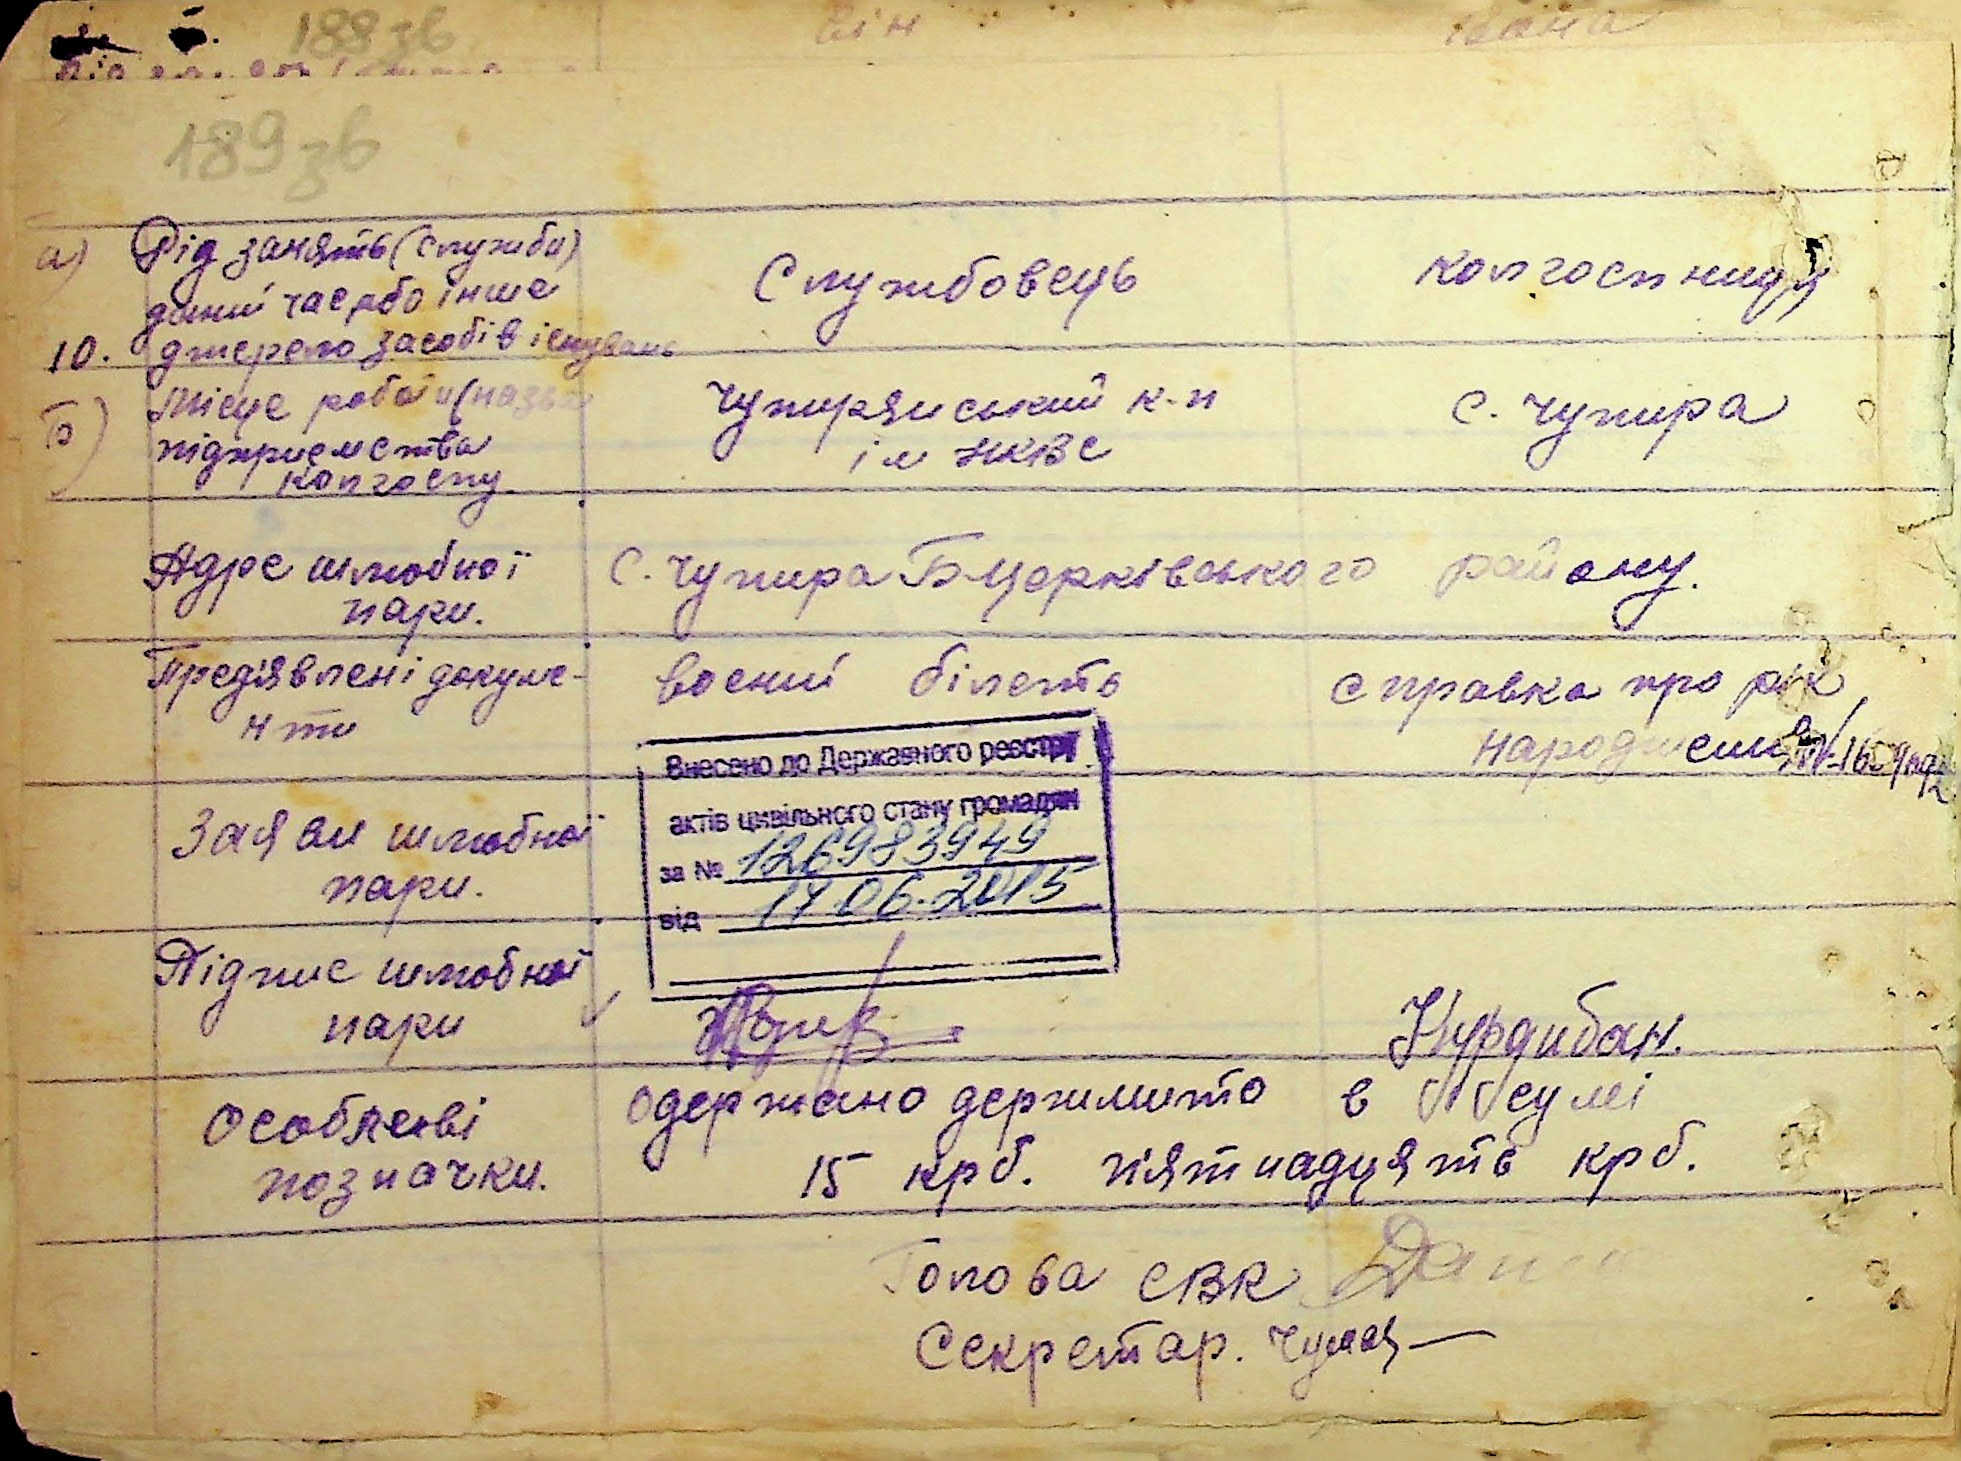 188 зв
він
вона
189 зв
а) Рід занять (служби)
даний час, або інше
10. джерело засобів існувань
Службовець
колгоспниця
б) Місце роботи (назва
підприємства
колгоспу
Чупирянський к-п
ім НКВС
с. Чупира
Адре шлюбної
пари.
с. Чупира Б-Церківського району.
Предявлені докуме-
нти
воений білеть
справка про рік
народження
Внесено до Державного реєстру
актів цивільного стану громадян
за № 126983949
від 17.06.2015
Заяви шлюбної
пари.
Підпис шлюбної
пари
Курдибан.
Особлеві
позначки.
Одержано держмито в сумі
15 крб. пятнадцять крб.
Голова СВК
Секретар.